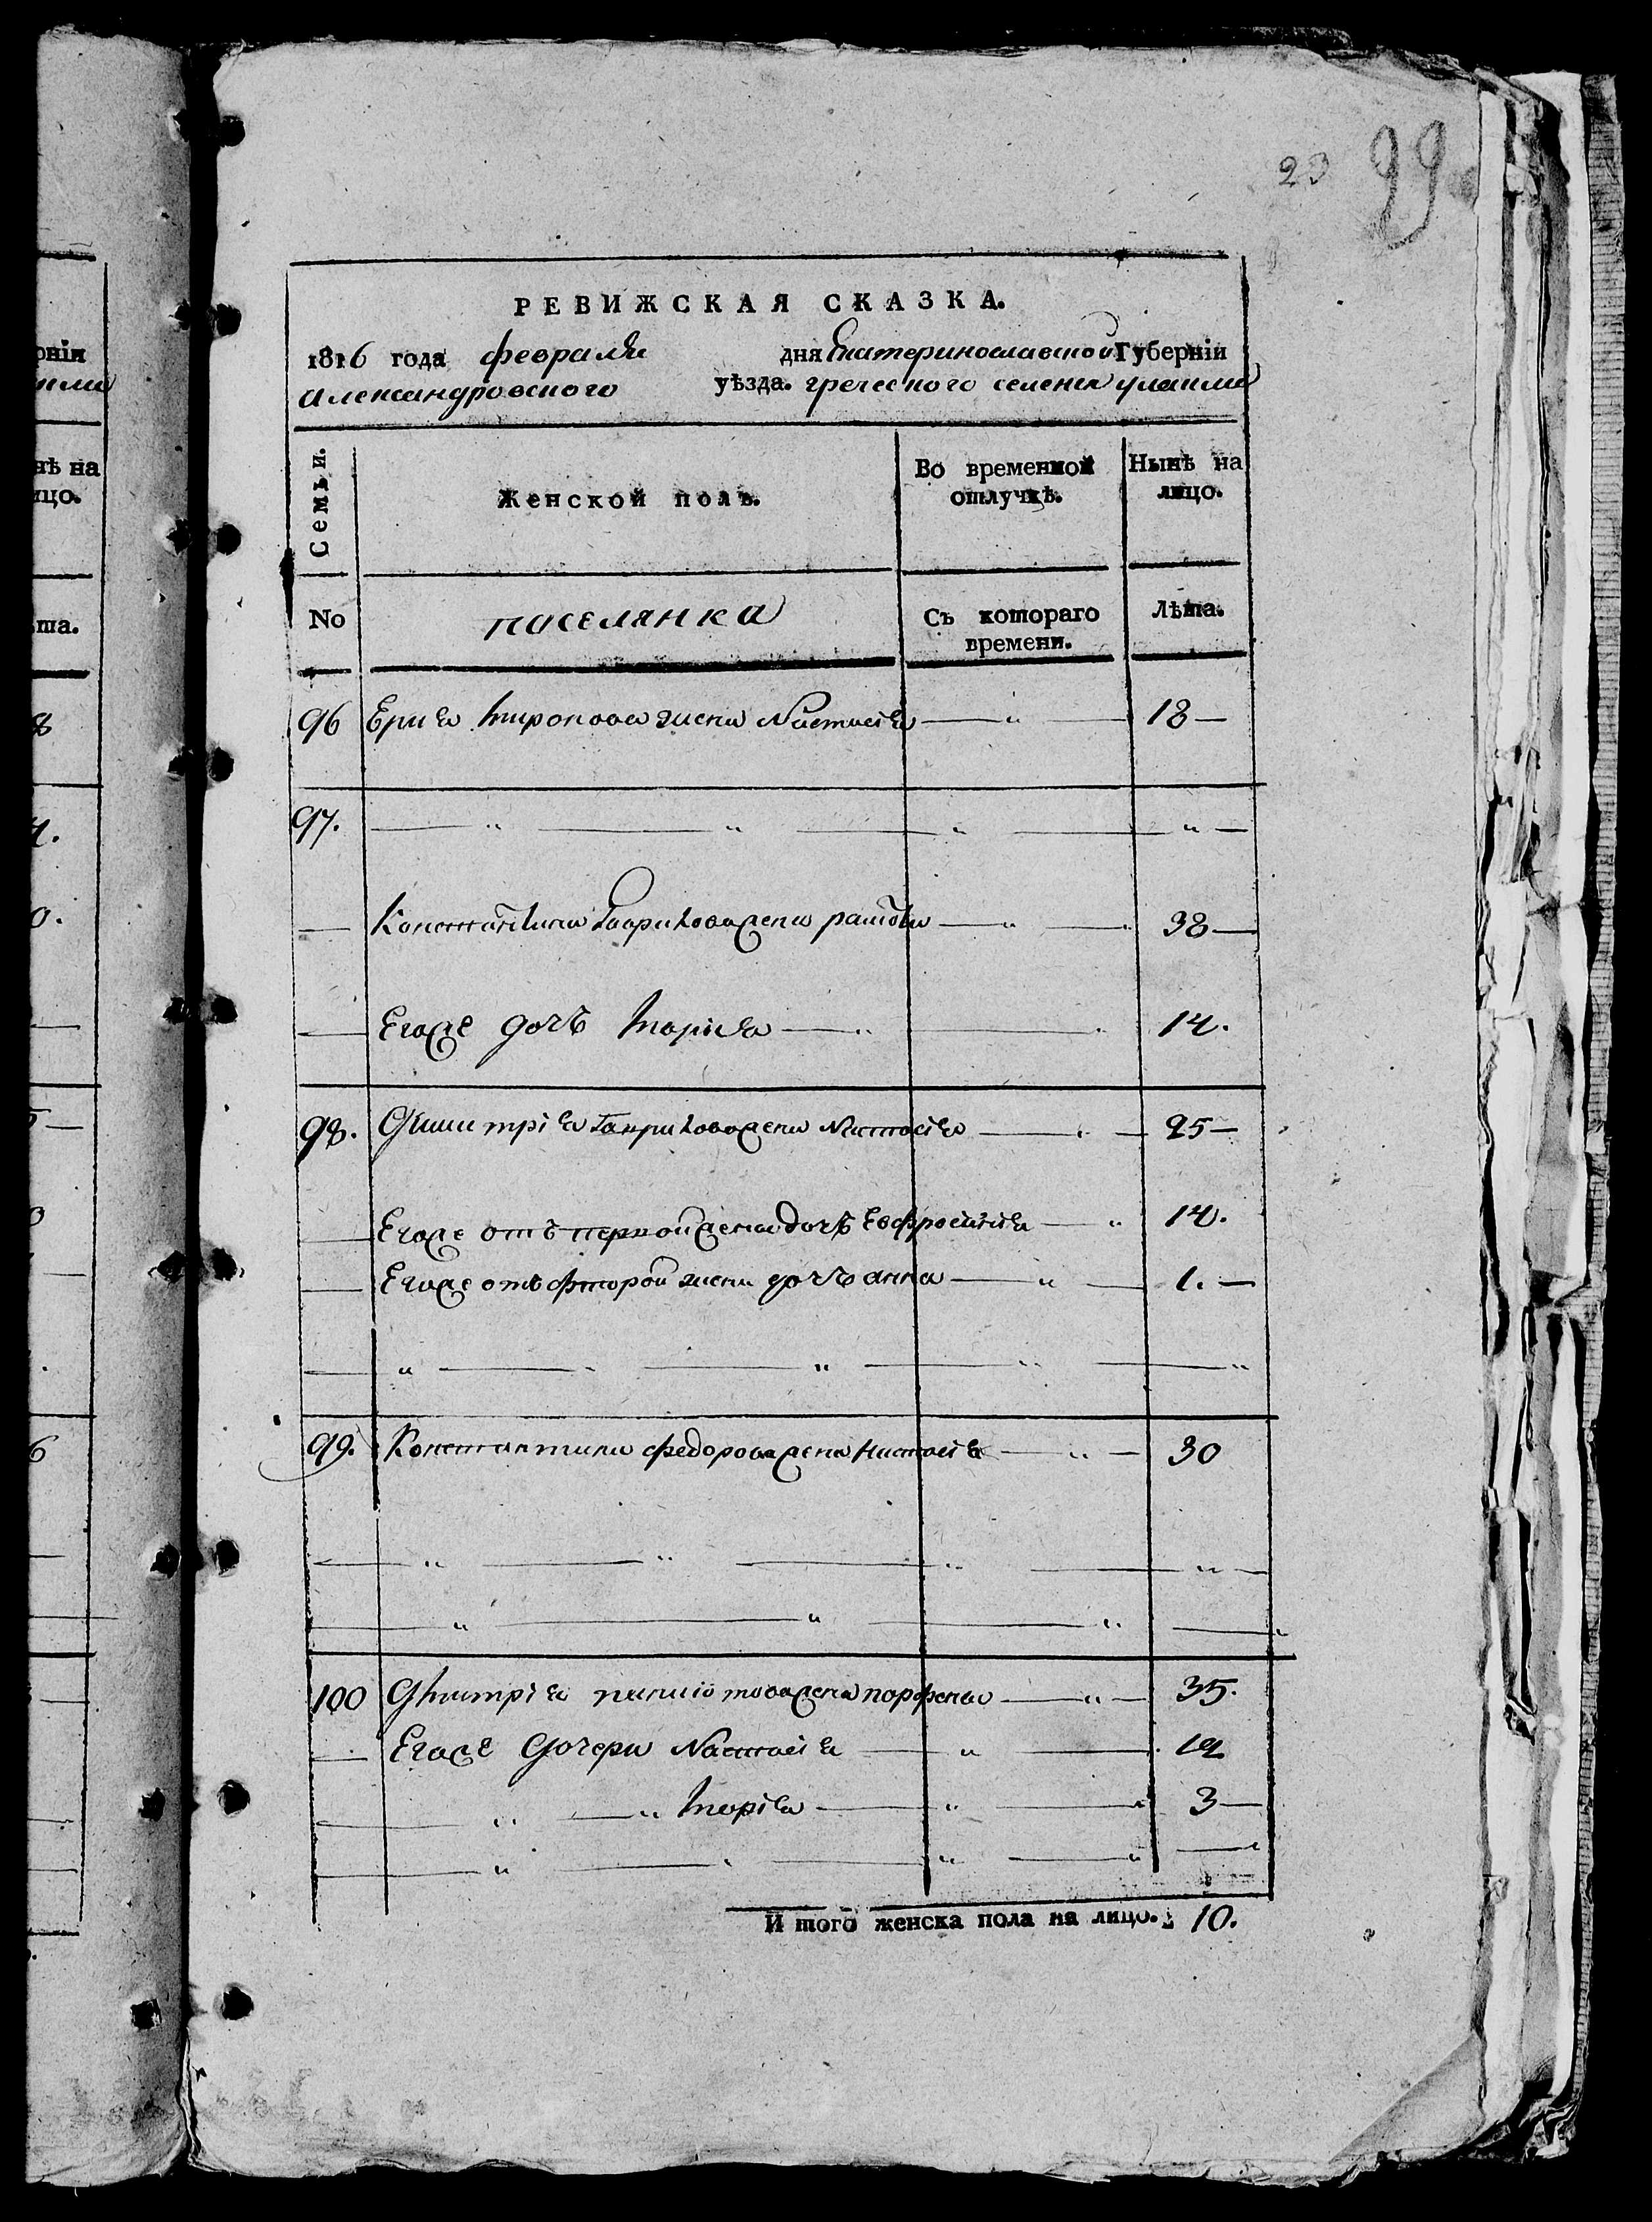 23 99
РЕВИЖСКАЯ СКАЗКА.
1816 года февраля дня Екатеринославской Губерніи
Александровского уѣзда. греческого селенія улаклы
Семьи. Женской полъ. Во временной отлучкѣ. Нынѣ на лицо.
No поселянка Съ котораго времени. Лѣта.
96 жена Настасія — „ — 18 —
97. — „ — „ — „ — „ —
— Константина Гаврилова жена — „ — 38 —
— Егоже дочъ Марія — „ — 14.
98. Дмитрія Гаврилова жена Настасія — „ — 25 —
— Егоже отъ первой жены дочъ Евфросинія — „ 14.
— Егоже отъ фторой жены дочъ анна — „ — 1. —
— „ — „ — „ — „
99. Константина федорова жена Настасія — „ — 30
— „ — „ — „ — „ —
— „ — „ — „ — „
100 Дмитрія жена парфена — „ — 35.
— Егоже дочери Настасія — „ — 12
— „ — „ Марія — „ — 3 —
— „ — „ — „ — „ —
И того женска пола на лицо. 10.